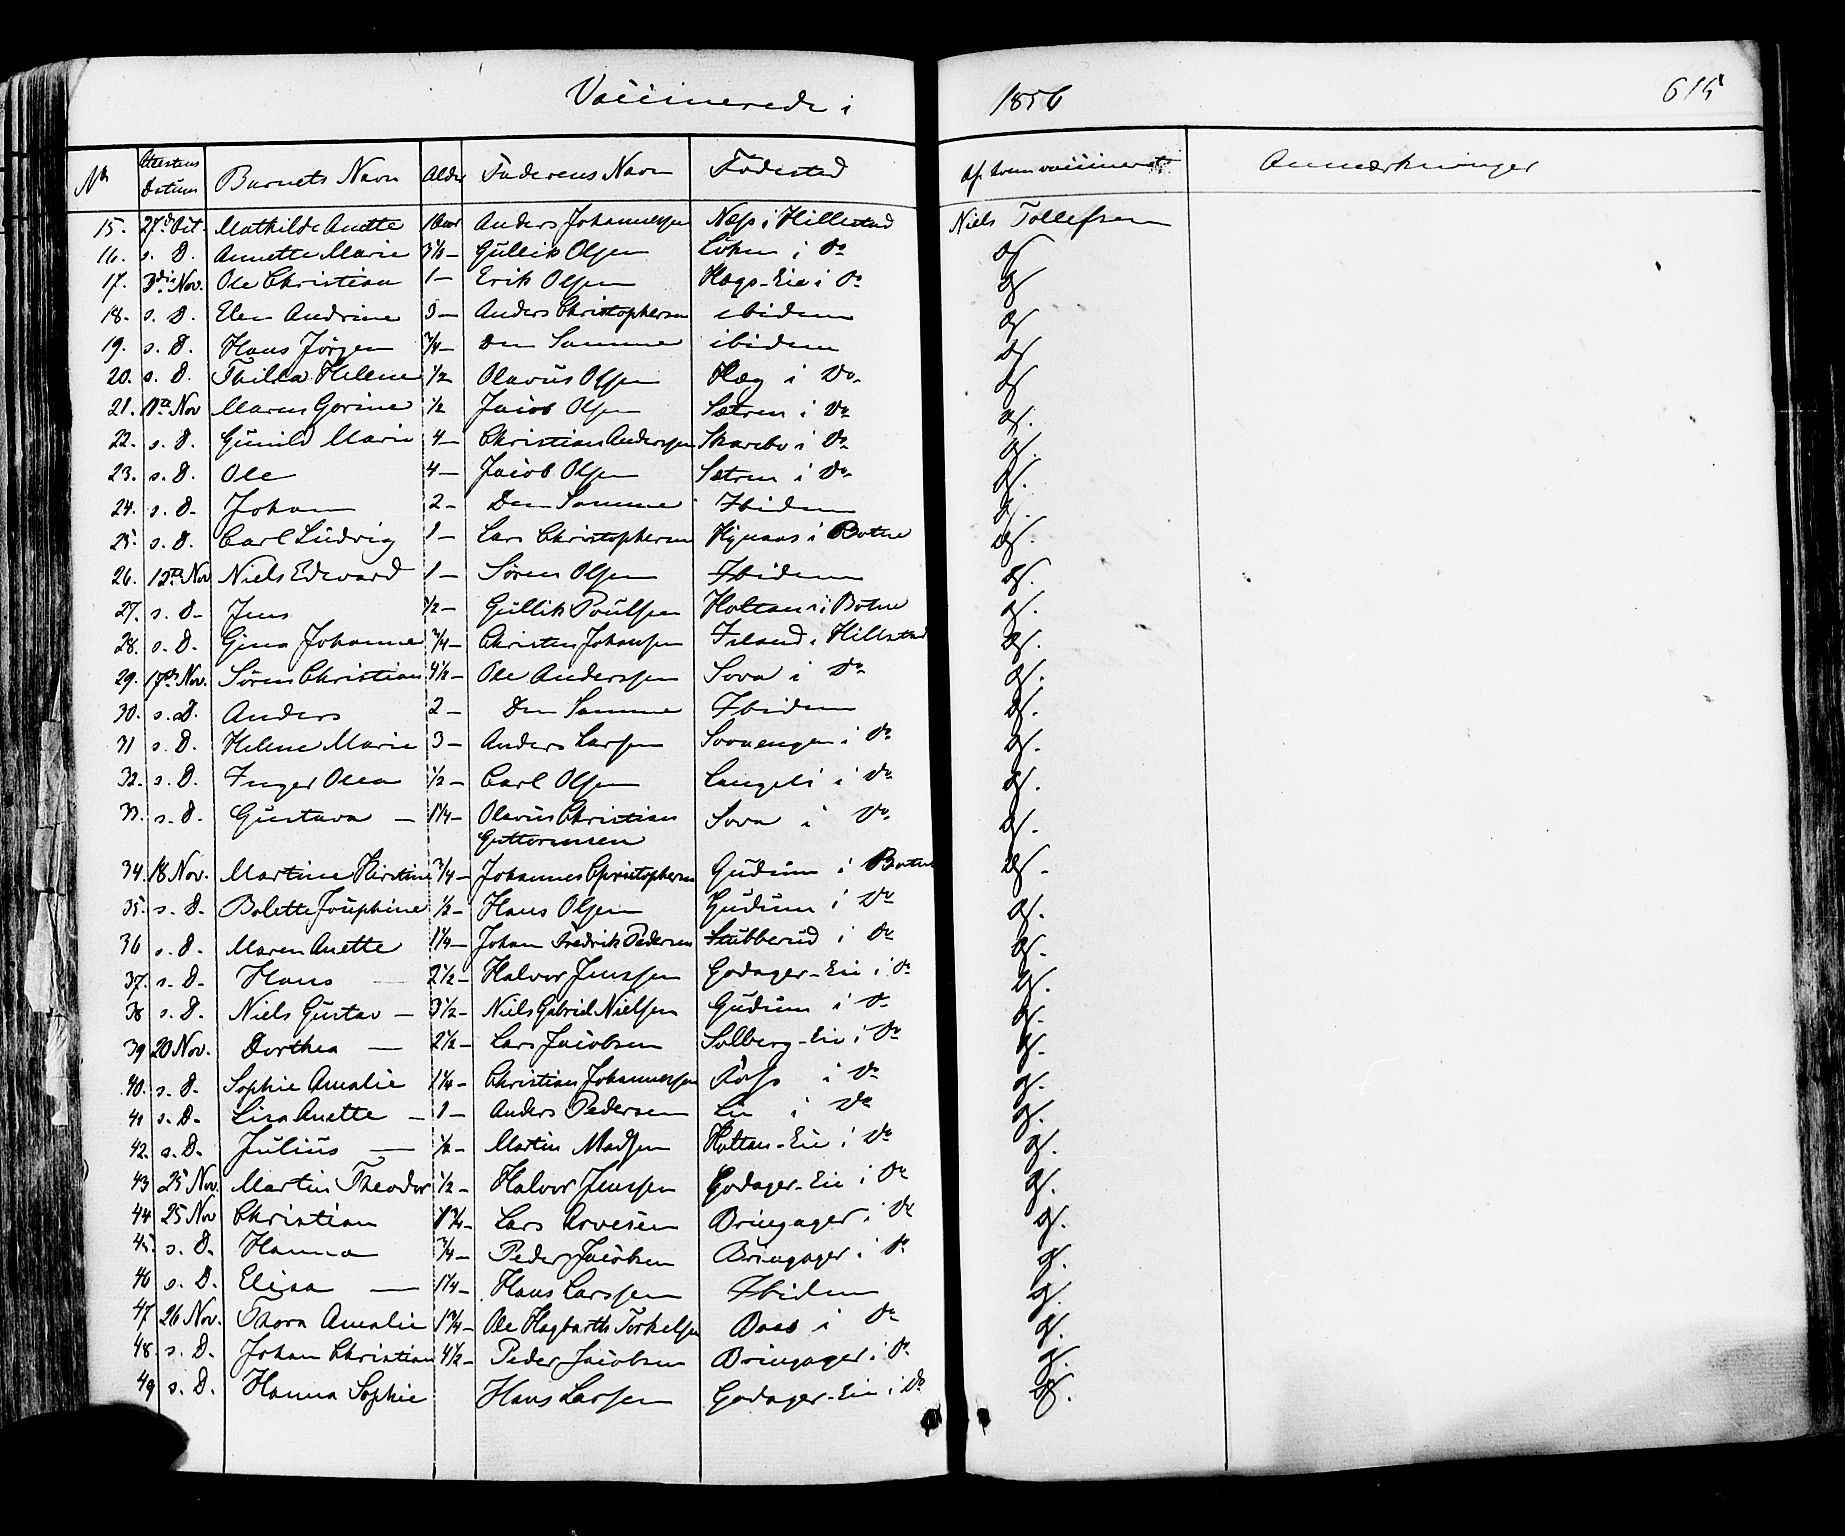 Vaccinerede i 1856 615
No Attestens Datum Barnets Navn Alder Faderens Navn Födested Af hvem vaccineret Anmærkninger
15. 27de Oct. Mathilde Anette 1 Aar Anders Johannessen Næs i Hillestad Niels Tollefsen
16. s. D. Annette Marie Gullik Olsen Löken i Do do
17. 3die Nov. Ole Christian 1 — Erik Olsen Hægs-Eie i Do do
18. s. D. Elen Andrine 3 — Anders Christophersen ibidem do
19. s. D. Hans Jörgen 3/4 — Den Samme ibidem do
20. s. D. Thilda Helene 1/2 Olavus Olsen Hæg i Do. do
21. Nov Maren Gorine 1/2 Jacob Olsen Sætren i Do do.
22. s. D. Gunild Marie 4 — Christian Anderssen Skarebo i Do do.
23. s. D. Ole 4 — Jacob Olsen Sætren i Do. do.
24. s. D. Johan 2 — Den Samme Ibidem do.
25. s. D. Carl Ludvig 1 — Lars Christophersen i Botne do.
26. 12te Nov Niels Edevard 1 — Sören Olsen Ibidem do.
27. s. D. Jens 1/2 — Gullik Poulsen Holtan i Botne do.
28. s. D. Gina Johanne 3/4 — Christen Johansen Island i Hillestad do.
29. 17de Nov. Sören Christian 4 1/2 — Ole Anderssen Sova i Do do.
30. s. D. Anders 2 — Den Samme Ibidem do.
31 s. D. Helene Marie 3 — Anders Larsen Sovaengen i Do do.
32. s. D. Inger Olea 1/2 — Carl Olsen Langeli i Do do.
33. s. D. Gustava — 1 1/4 — Olavus Christian Sova i Do. do.
Guttormsen
34. 18 Nov. Martine Kirstine 3/4 — Johannes Christophersen Gudum i Botne do.
35. s. D. Bolette Josephine 1/2 — Hans Olsen Gudum i Do do.
36 s. D. Maren Anette 1 1/4 — Johan Fredrik Pedersen Stubberud i Do do.
37. s. D. Hans — 2 1/2 — Halvor Jenssen Godager-Eie i Do do.
38 s. D. Niels Gustav — 3 1/2 — Niels Gabriel Nielsen Gudum i Do do.
39 20 Nov. Dorthea — 2 1/2 — Lars Jacobsen Solberg-Eie i Do do.
40. s. D. Sophie Amalie 1 1/4 — Christian Johannessen i Do do.
41 s. D. Lisa Anette — 1 — Anders Pedersen Lie i Do do.
42. s. D. Julius — 1/2 — Martin Madsen Holtan-Eie i Do do.
43 25 Nov. Martin Theodor 1/2 — Halvor Jenssen Godager-Eie i Do do.
44 25 Nov Christian 1 3/4 — Lars Arvesen Bringager i Do do.
45. s. D. Hanna 3/4 — Peder Jacobsen Bringager i Do do.
46 s. D. Elisa — 1 1/4 — Hans Larssen Ibidem do.
47 26 Nov. Thora Amalie 1 3/4 — Ole Hagbarth Torkelsen Baas i Do do.
48. s. D. Johan Christian 4 1/2 — Peder Jacobsen Bringager i Do do.
49 s. D. Hanna Sophie Hans Larsen Godager-Eie i Do do.